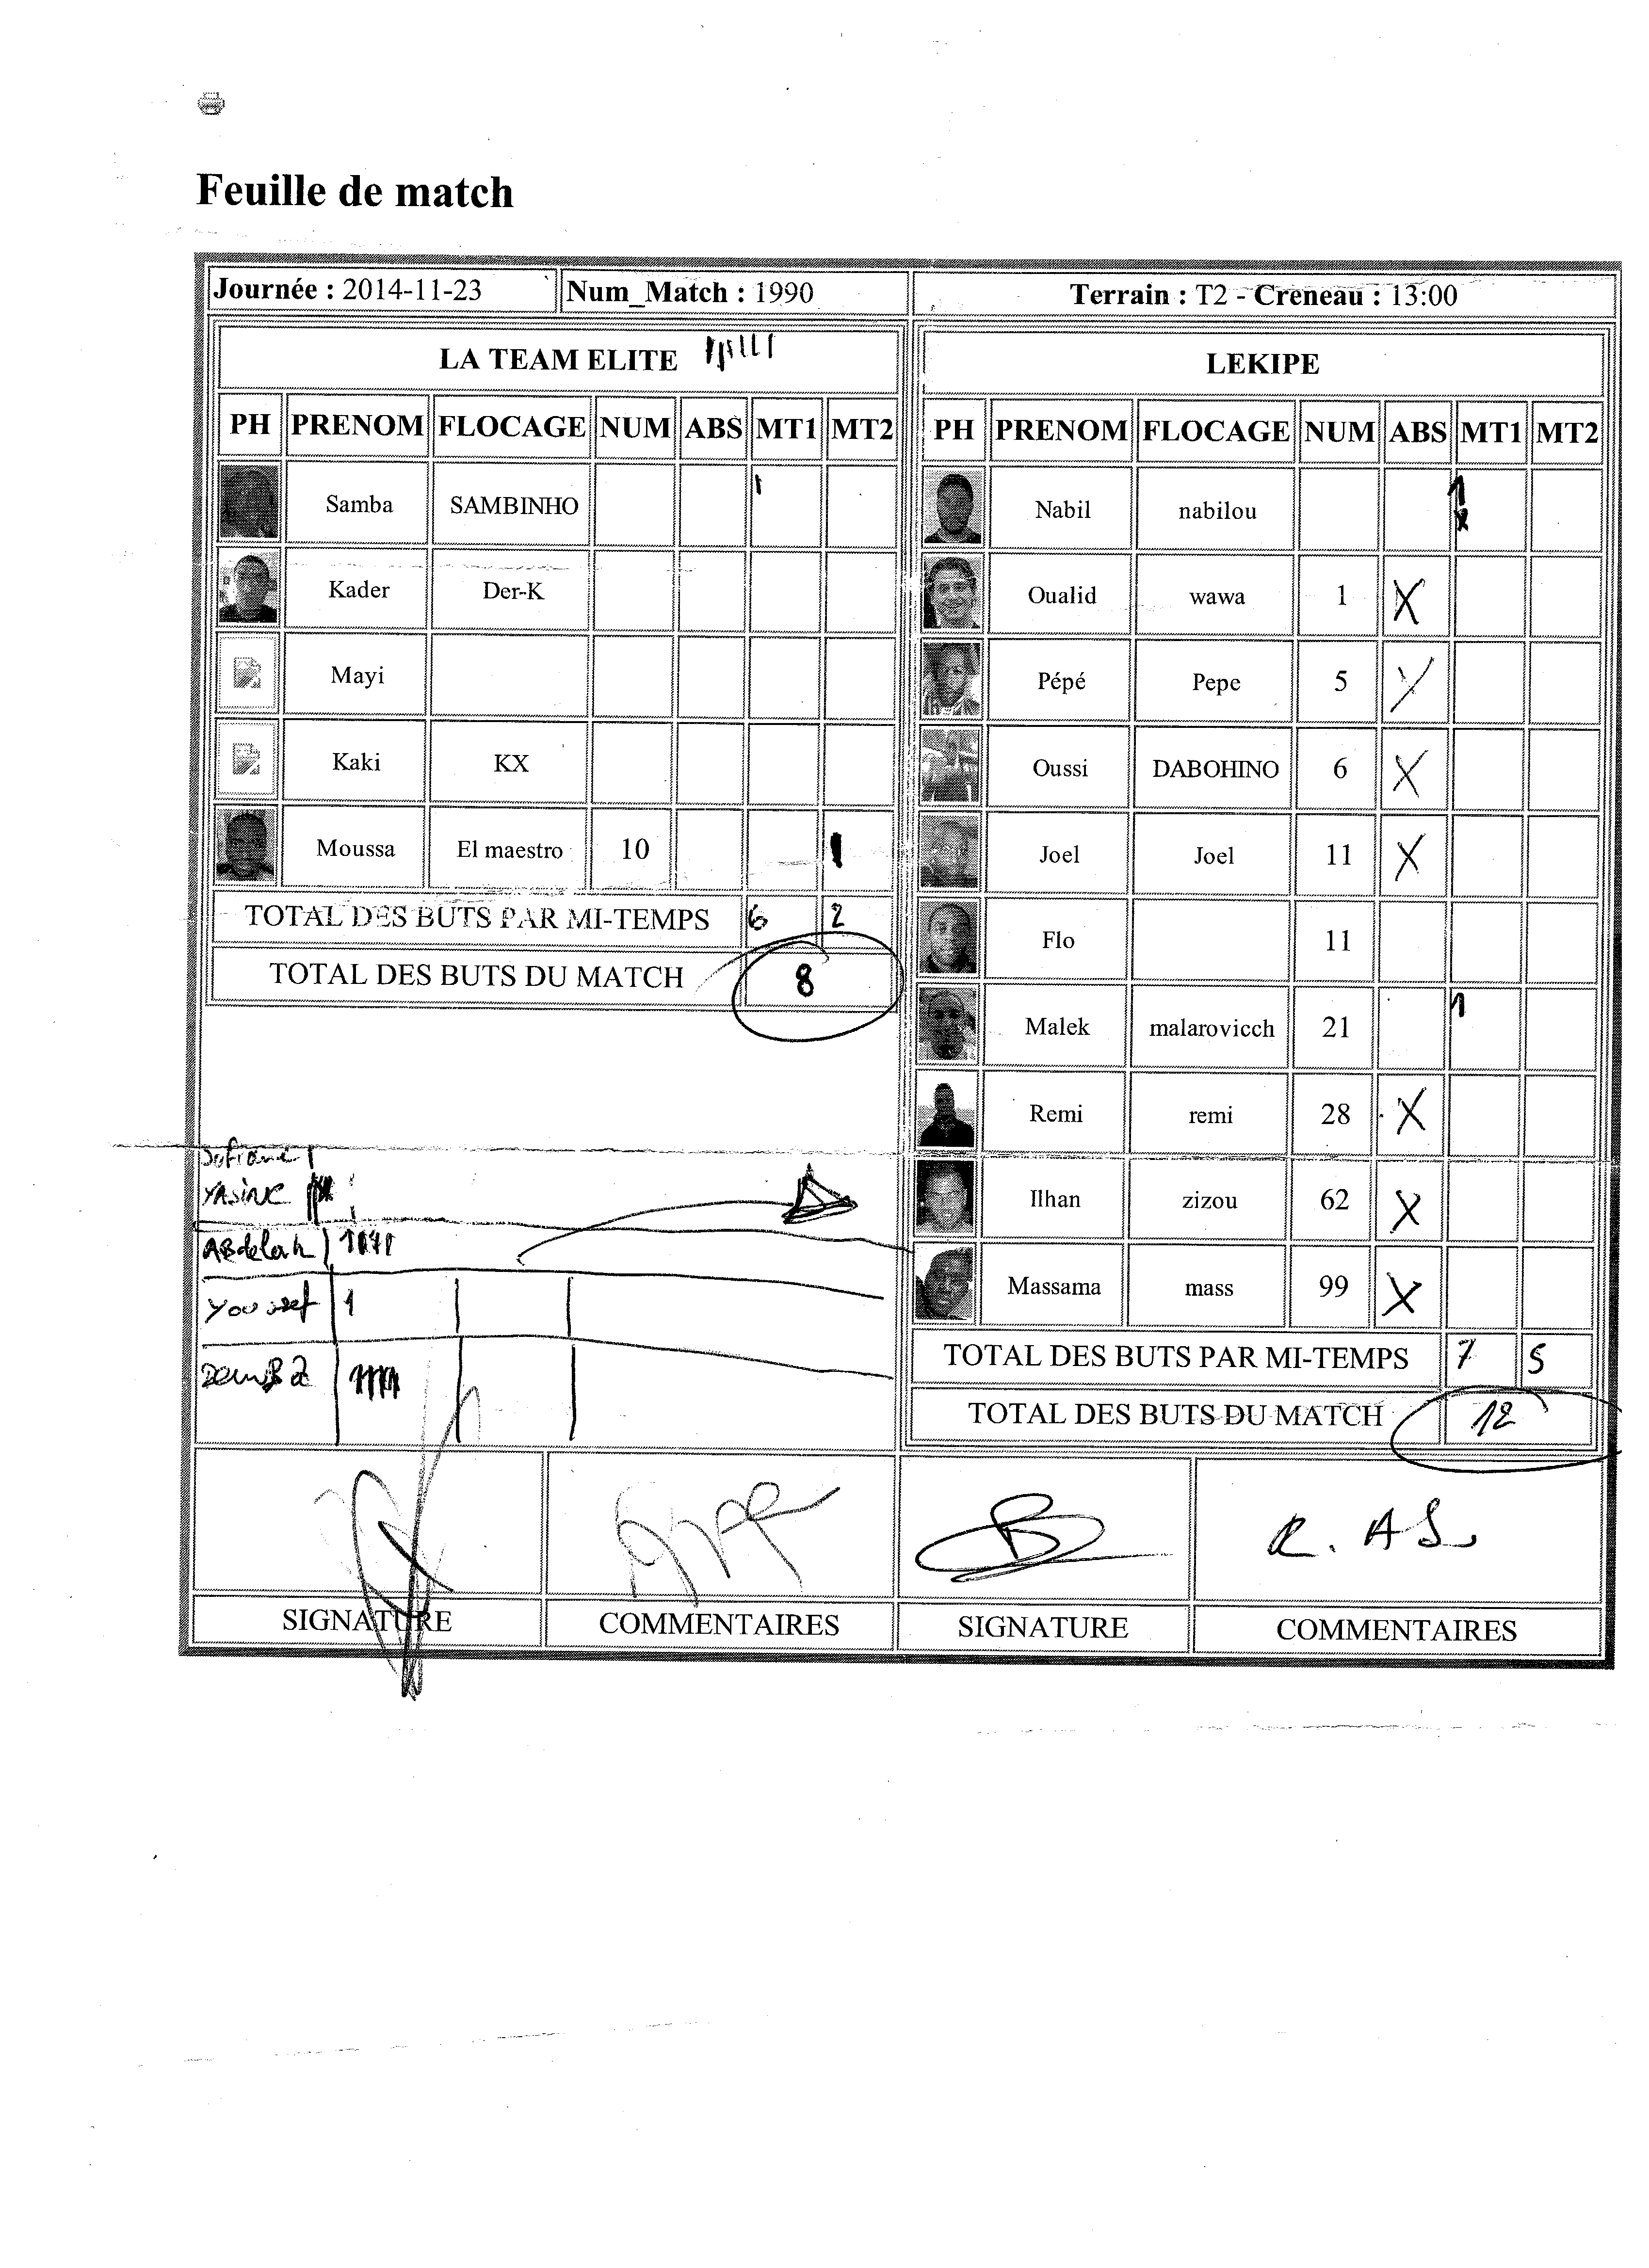 Feuille de match
Journée : 2014-11-23 Num_Match : 1990 Terrain : T2 - Creneau : 13:00
LA TEAM ELITE
PH PRENOM FLOCAGE NUM ABS MT1 MT2
Samba SAMBINHO 1
Kader Der-K
Mayi
Kaki KX
Moussa El maestro 10 1
TOTAL DES BUTS PAR MI-TEMPS 6 2
TOTAL DES BUTS DU MATCH 8
YASINE
ABdelah
Youssef 1
LEKIPE
PH PRENOM FLOCAGE NUM ABS MT1 MT2
Nabil nabilou
Oualid wawa 1 X
Pépé Pepe 5 X
Oussi DABOHINO 6 X
Joel Joel 11 X
Flo 11
Malek malarovicch 21 1
Remi remi 28 X
Ilhan zizou 62 X
Massama mass 99 X
TOTAL DES BUTS PAR MI-TEMPS 7 5
TOTAL DES BUTS DU MATCH 12
R. AS
SIGNATURE COMMENTAIRES SIGNATURE COMMENTAIRES